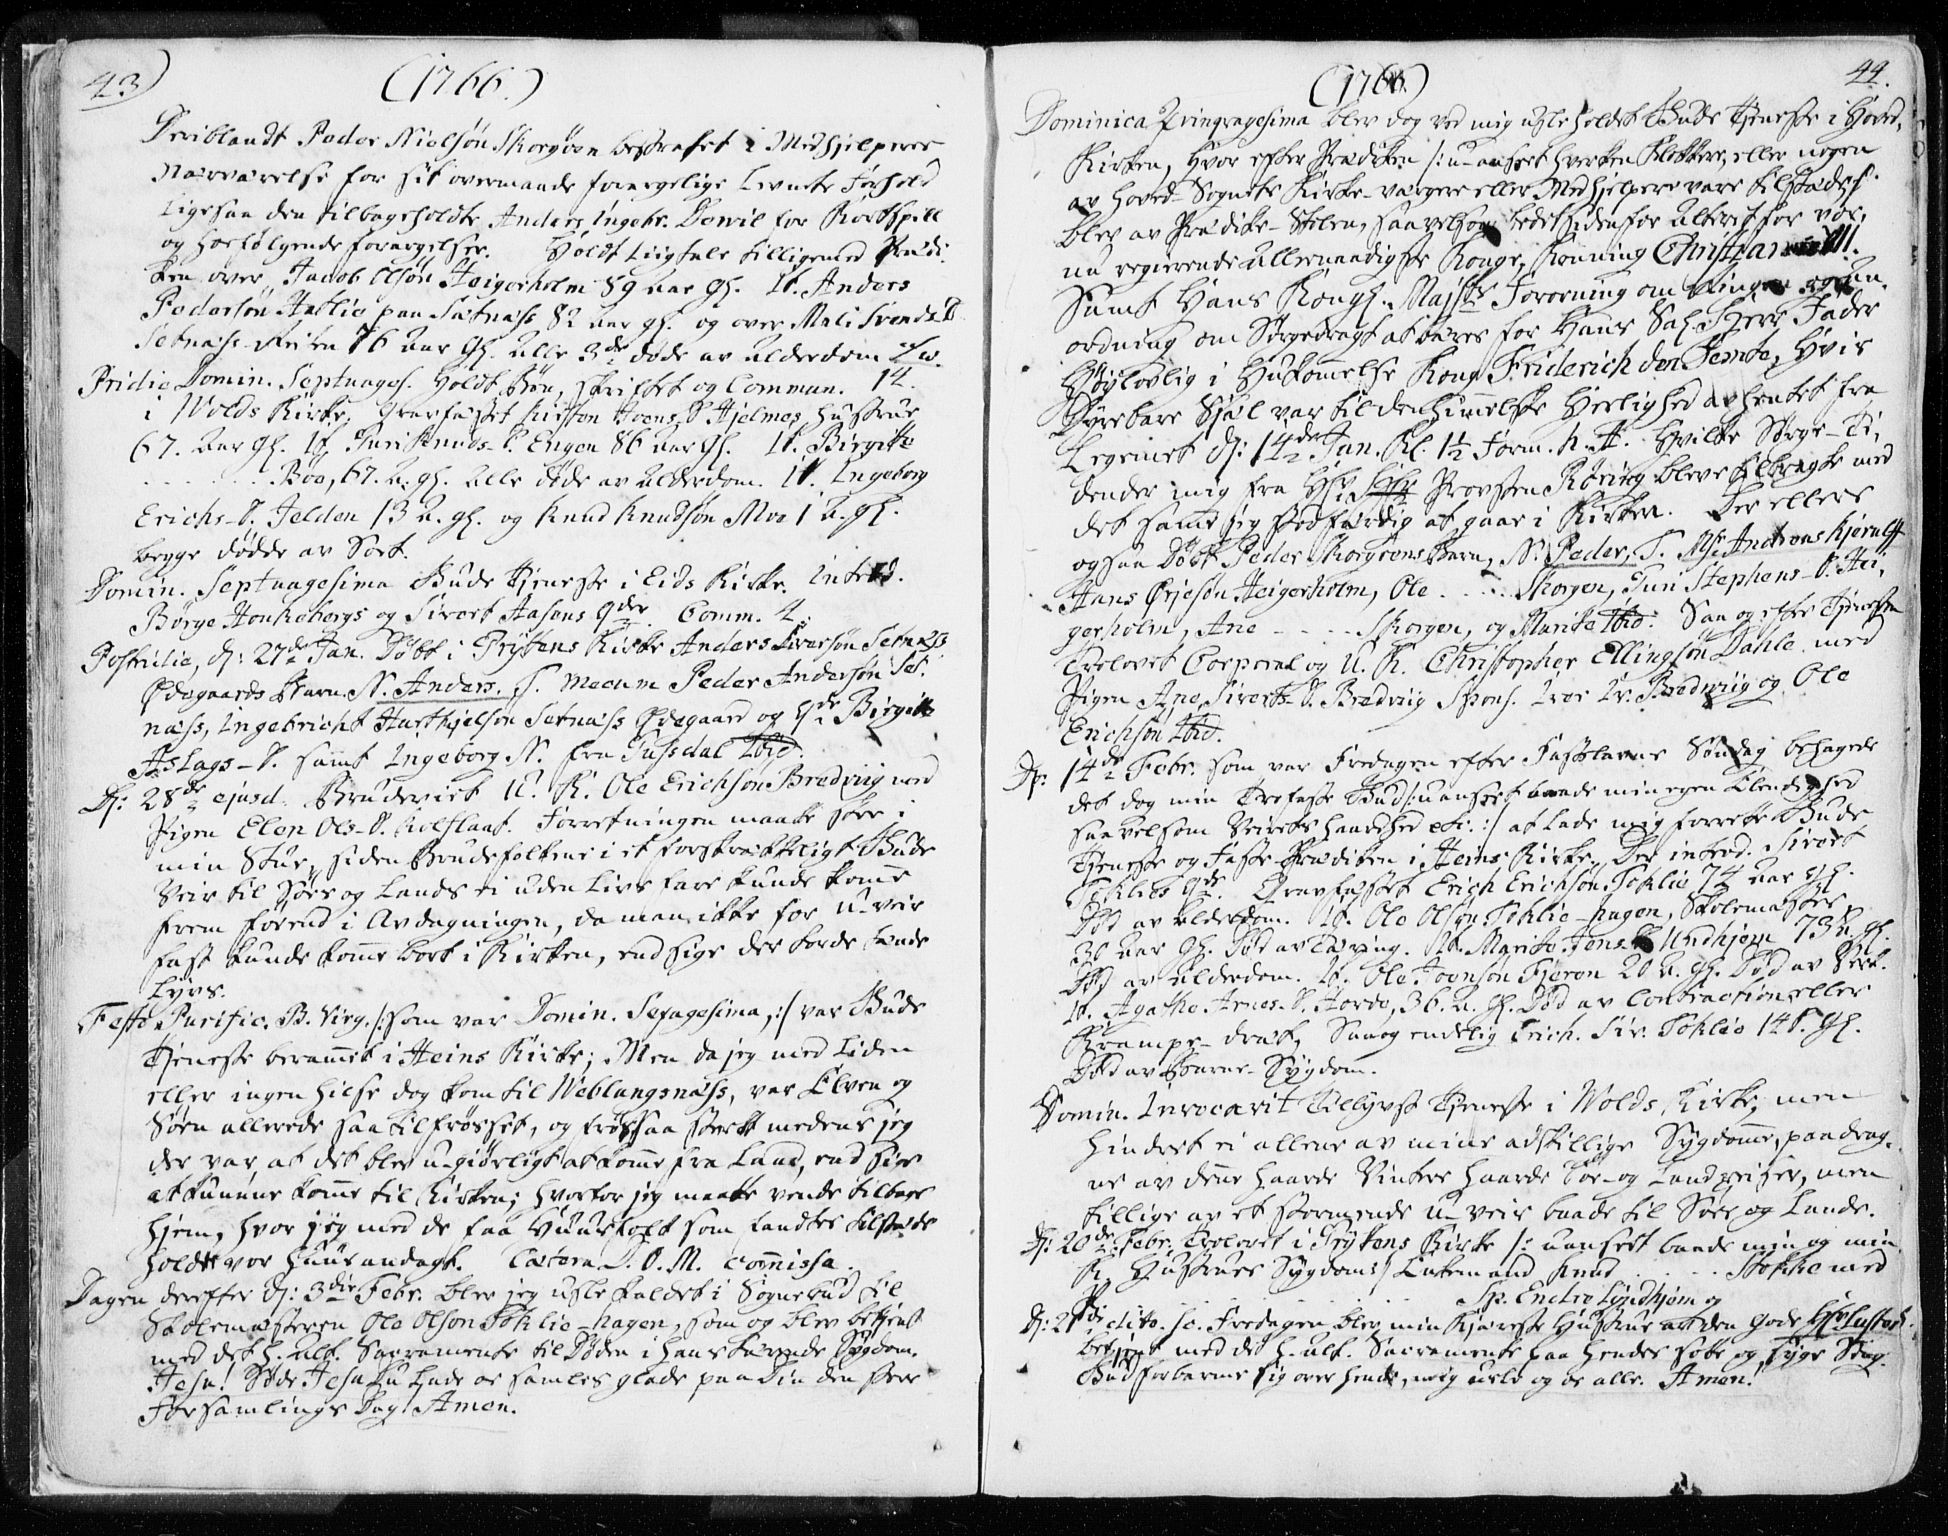 43)
(1766.)
Deriblandt Peder Nielsøn Skorgøen bestrafet i Medhjelperes
Nærværelse for sit overmaade forargelige Levnets Forhold
Ligesaa den tilbageholdte Anders Ingebr. Dowil for Kortspill
og forfølgende forargelser. Holdt Liigtale tilligemed Prædi-
ken over Jacob Olsøn Heigerholm 89 aar gl. It. Anders
Pedersøn Hatlie paa Sætnæss 82 aar gl. og over Mali Svends D.
Setnæss-Reiten 76 aar gl. alle 3de døde av alderdom
Pridie Domin. Septuages. Holdt Bøn, skriftet og Commun. 14.
i Wolds Kirke. Gravfæstet Kirsten Joens D. Hjelmes Hustrue
67. aar gl. It. Turi Knuds-D. Engen 86 aar gl. It. Birgitte
. . . . . . . . Boe, 67. a. gl. alle døde av alderdom. It. Ingeborg
Erichs-D. Jelden 13 a. gl. og Knud Knudsøn Moe 1 a. gl.
begge dødde av Sott.
Domin. Septuagesima Guds Tjeneste i Eids Kirke. Introd.
Børge Honkebergs og Sivert Aasens qdr. Comm. 4.
Postridie, d: 27de Jan. Døbt i Grytens Kirke Anders Iversøn Setnæss
Ødegaards Barn. N. Anders. T. mecum Peder Andersøn Set-
næss, Ingebricht Hartkjelsøn Setnæss Ødegaard og qde Birgitte
Aslags-D. samt Ingeborg N. fra Fussdal Ibid.
D: 28de ejusd. Brudeviet U. K. Ole Erichsøn Bredviig med
Pigen Elen Ols-D. Rolfslaat. Forretningen maatte skee i
min Stue, siden Brudefolkene i et forskrækkeligt Guds
Veir til Søes og Lands ei uden Livs fare kunde komme
frem førend i Avdagningen, da man ikke for U-veir
fast kunde komme bort i Kirken, end sige der torde tænde
Lyys.
Festo Purific. B. Virg. /: som var Domin. Sexagesima, :/ var Guds
Tjeneste berammet i Heins Kirke; Men da jeg med Liden
eller ingen Hilse dog kom til Weblungsnæss, var Elven og
Søen allerede saa tilfrosset, og frøs saa stærkt medens jeg
der var, at det blev u-giørligt at komme fra Land, end sige
at kunne komme til Kirken; hvorfor jeg maatte vende tilbage
hjem, hvor jeg med de faa Huusfolk som fandtes tilstæde
holdt vor Huus andagt. Cætera D. O. M. commissa.
Dagen derefter d: 3die Febr. blev jeg usle kaldet i Sognebud til
Skolemesteren Ole Olsøn Soklie-hagen, som og blev betjent
med det h. alt. Sacramente til Døden i hans tærende Sygdom.
Jesu! Søde Jesu Du Lade os samles glade paa Din den store
Forsamlings Dag! Amen.
44.
(1766.)
Dominica Qvinqvagesima blev dog ved mig usle holdet Guds Tjeneste i Hoved-
Kirken, Hvor efter Prædiken /: u-anseet hverken Klokkere, eller nogen
av Hoved-Sognets Kirke-værgere eller Medhjelpere vare tilstædes
blev av Prædike-Stolen, saavelsom bedet siden for Alteret for vor
nu regierende Allernaadigste Konge, Konning Christian VII.
Samt Hans Kongl. Majsts Forordning om Ringen og An-
ordning om Sørgedragt at bæres for Hans Sal. Herr Fader
Højlovlig i Hukommelse Kong Friderich den Femte, Hvis
Dyrebare Sjæl var til den himmelske Herlighed avhentet fra
Legemet d: 14de Jan. Kl. 1½ Form. h. A. Hvilke Sørge-Ti-
dender mig fra Hr. Prousten Røring bleve tilbragte med
det samme jeg stod færdig at gaae i Kirken. Der ellers
ogsaa Døbt Peder Skorgøens Barn, N. Peder, T. Mr. Andreas Kjerulff
Hans Ørjesøn Heigerholm, Ole . . . . Skorgen, Turi Stephens-D. Hei-
gerholm, Ane - . . . . Skorgen, og Marite Ibid. Saa og efter Tjenesten
Trolovet Corporal og U. K. Christopher Ellingsøn Dahle med
Pigen Ane Siverts-D. Bredviig Spons. Iver Iv. Bredviig og Ole
Erichsøn Ibid.
D: 14de Febr. som var Fredagen efter Fastelavns Søndag behagede
det dog min Trofaste Gud /: uanseet baade min egen Elendighed
saavelsom Veirets haardhed etc. :/ at lade mig forrette Guds
Tjeneste og Faste-Prædiken i Heins Kirke. Der introd. Sivert
Soklies qde. Gravfæstet Erich Erichsøn Soklie 74 aar gl.
Død av Alderdom. It. Ole Olsøn Soklie-hagen, Skolemester
30 aar gl. Død av Tæring. It. Marite Jens D. Undhjem 73 a. gl.
Død av alderdom. It. Ole Joensøn Fjeren 20 a. gl. Død av Verk.
It. Agathe Arnes-D. Horve, 36. a. gl. Død av Contraction eller
Krampe-dræt, Saa og endelig Erich. Siv. Soklie 14 T. gl.
Død av Barne-Sygdom.
Domin. Invocavit Tillyyst Tjeneste i Wolds Kirke, men
hindret ei allene av mine adskillige Sygdomme, paadrag-
ne av denne haarde Vinters haarde Søe- og Landreiser, men
tillige av et stormende U-veir baade til Søes og Lands.
D: 20de Febr. Trolovet i Grytens Kirke /: uanseet baade min og min
K. Hustrues Sygdom :/ Enkemand Knud . . . . . Stokke med
P. . . . . . . Sp. Endre Lyndhjem og
D: 21de dito. sc. Fredagen blev min Kjæreste Hustrue av den gode Hr.
betjent med det h. alt. Sacramente paa hendes sotte og Syge Seng.
Gud forbarme sig over hende, mig usle og os alle. Amen!